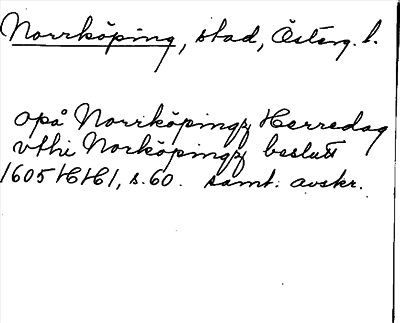 Norrköping, stad, Österg. l.
opå Norrköpingz Herredag
vthi Norköpingz beslutt
1605 HH1, s. 60. samt. avskr.